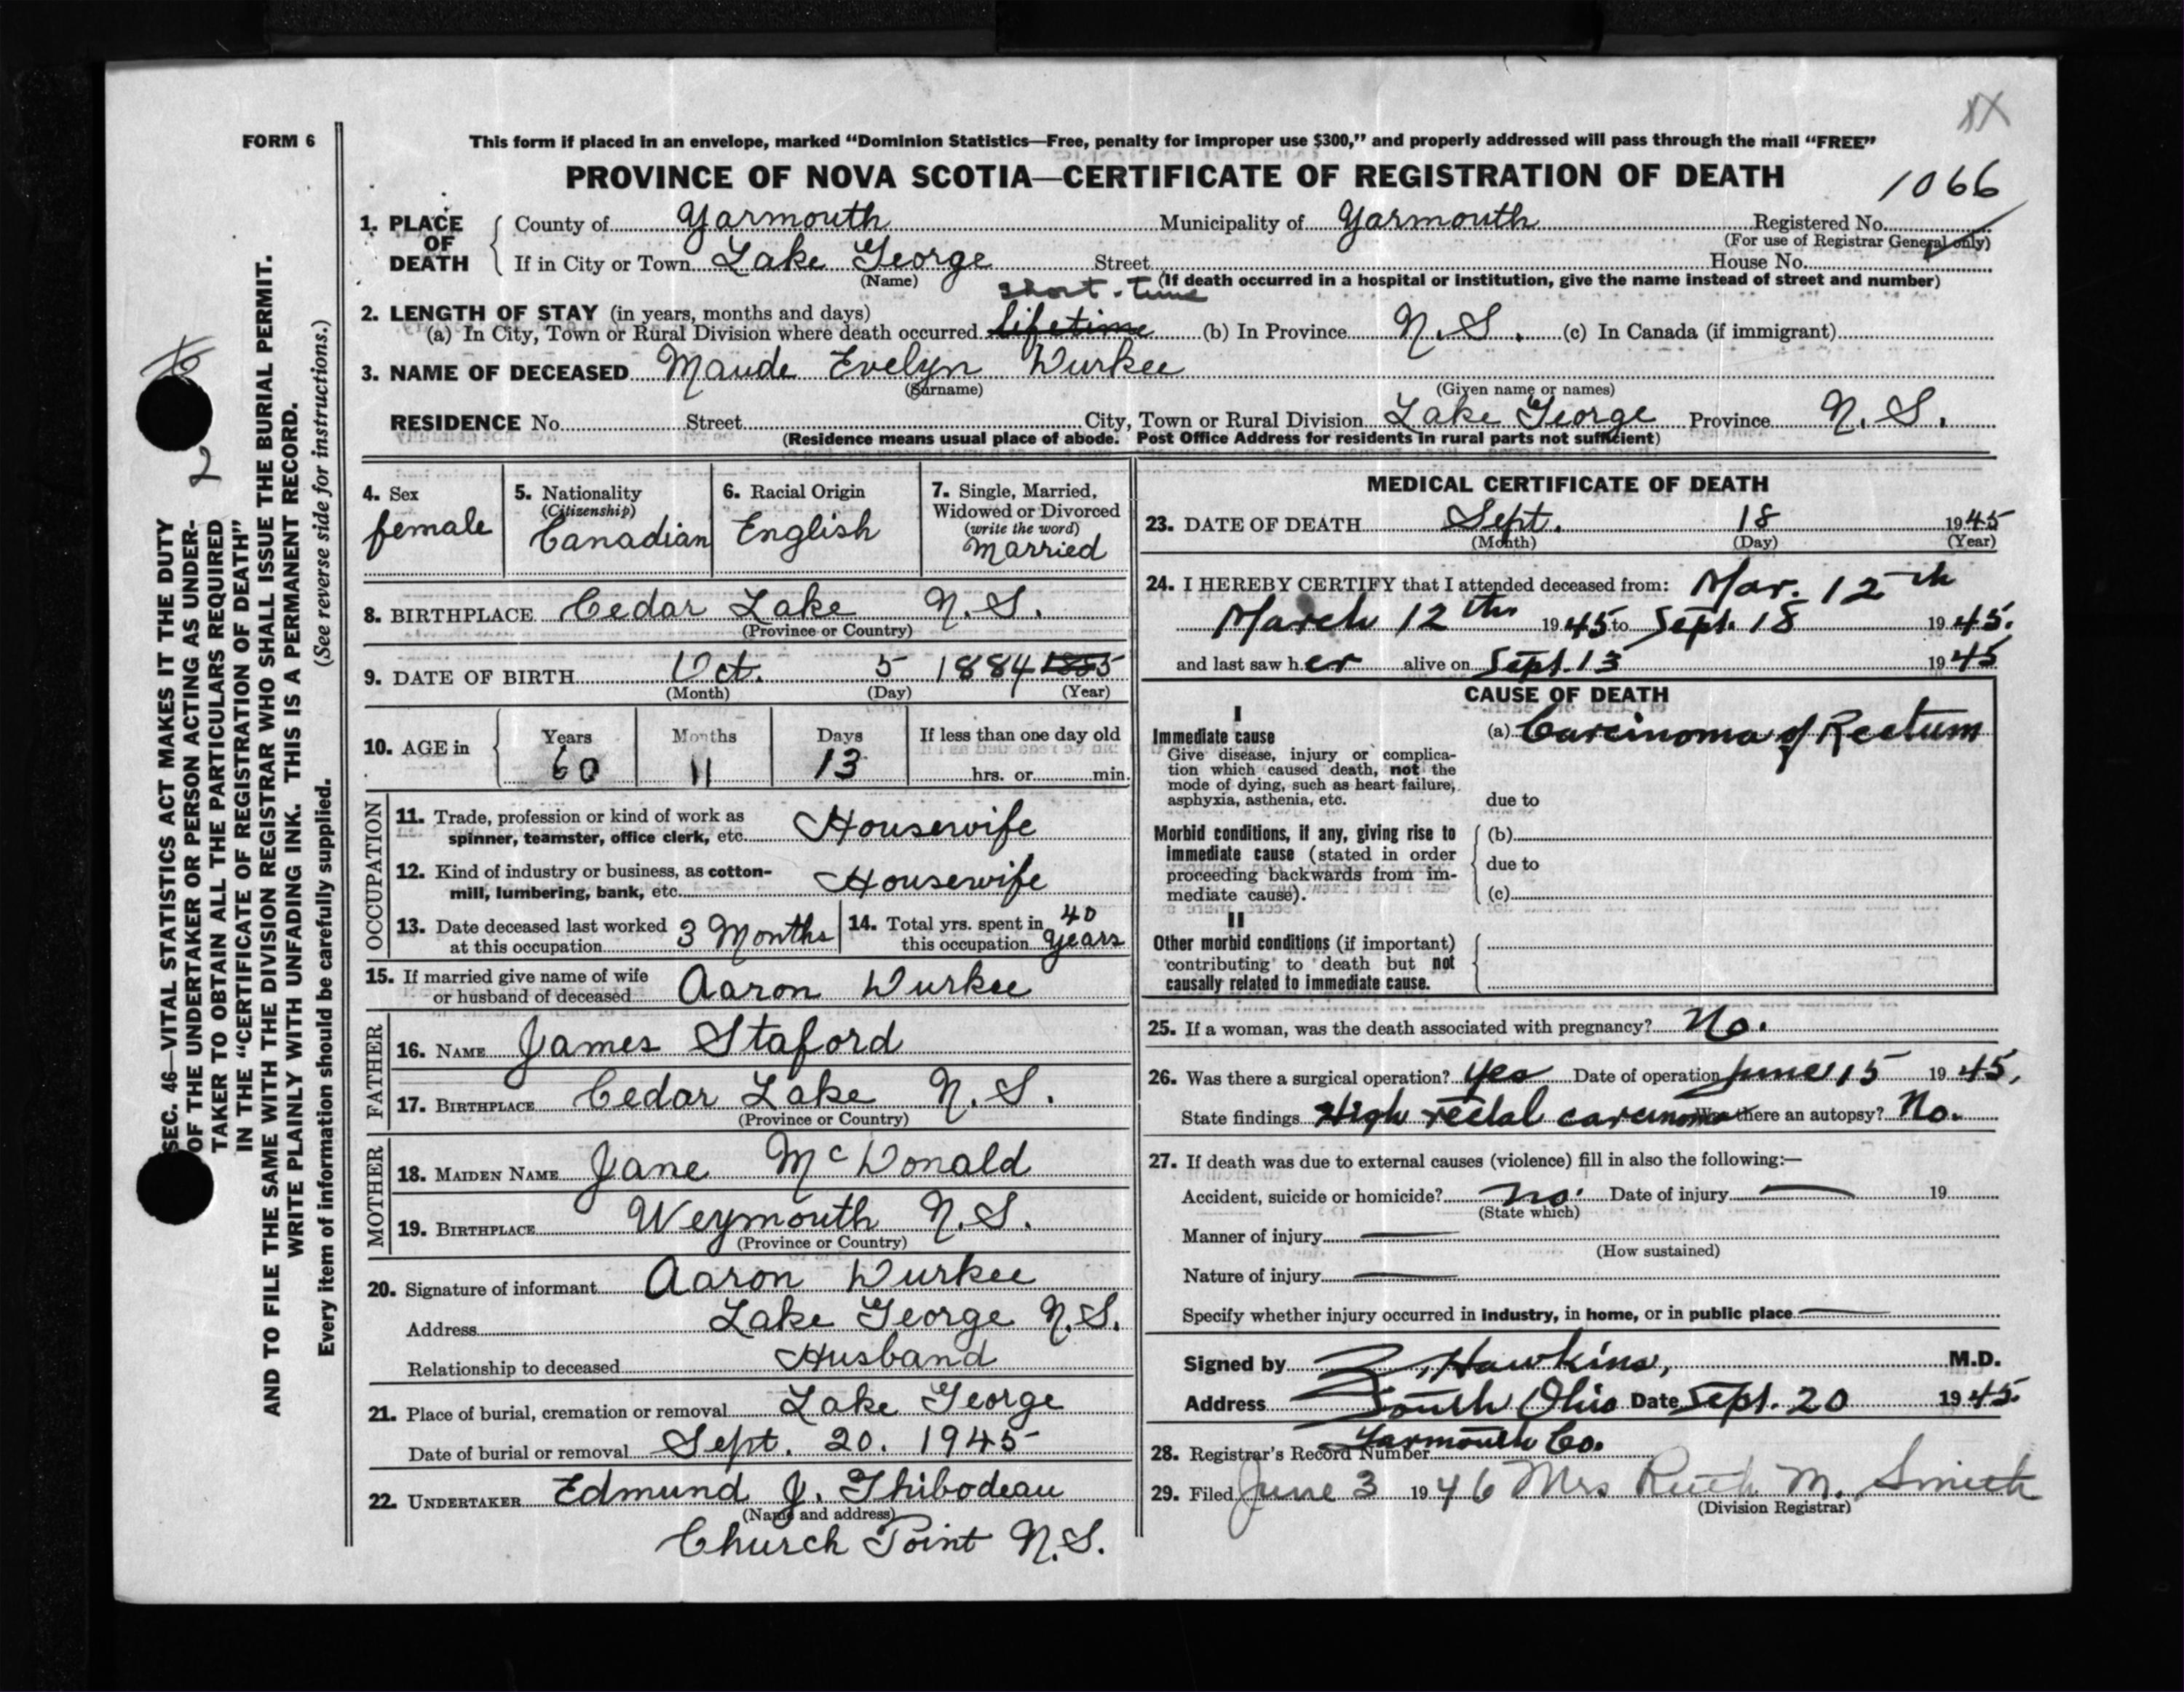 FORM 6
This form if placed in an envelope, marked “Dominion Statistics—Free, penalty for improper use $300,” and properly addressed will pass through the mail “FREE”
PROVINCE OF NOVA SCOTIA—CERTIFICATE OF REGISTRATION OF DEATH
1066
1. PLACE OF DEATH
County of Yarmouth Municipality of Yarmouth Registered No.
(For use of Registrar General only)
If in City or Town Lake George Street House No.
(Name) (If death occurred in a hospital or institution, give the name instead of street and number)
short-time
2. LENGTH OF STAY (in years, months and days)
(a) In City, Town or Rural Division where death occurred lifetime (b) In Province N.S. (c) In Canada (if immigrant)
3. NAME OF DECEASED Maude Evelyn Durkee
(Surname) (Given name or names)
RESIDENCE No. Street City, Town or Rural Division Lake George Province N.S.
(Residence means usual place of abode. Post Office Address for residents in rural parts not sufficient)
4. Sex
female
5. Nationality
(Citizenship)
Canadian
6. Racial Origin
English
7. Single, Married,
Widowed or Divorced
(write the word)
Married
8. BIRTHPLACE Cedar Lake N.S.
(Province or Country)
9. DATE OF BIRTH Oct. 5 1884 1885
(Month) (Day) (Year)
10. AGE in
Years Months Days If less than one day old
60 11 13 hrs. or min.
OCCUPATION
11. Trade, profession or kind of work as
spinner, teamster, office clerk, etc. Housewife
12. Kind of industry or business, as cotton-
mill, lumbering, bank, etc. Housewife
13. Date deceased last worked
at this occupation 3 Months
14. Total yrs. spent in 40
this occupation years
15. If married give name of wife
or husband of deceased Aaron Durkee
FATHER
16. NAME James Staford
17. BIRTHPLACE Cedar Lake N.S.
(Province or Country)
MOTHER
18. MAIDEN NAME Jane McDonald
19. BIRTHPLACE Weymouth N.S.
(Province or Country)
20. Signature of informant Aaron Durkee
Address Lake George N.S.
Relationship to deceased Husband
21. Place of burial, cremation or removal Lake George
Date of burial or removal Sept. 20. 1945
22. UNDERTAKER Edmund J. Thibodeau
(Name and address)
Church Point N.S.
MEDICAL CERTIFICATE OF DEATH
23. DATE OF DEATH Sept. 18 1945
(Month) (Day) (Year)
24. I HEREBY CERTIFY that I attended deceased from: Mar. 12th
March 12th 1945 to Sept. 18 1945.
and last saw her alive on Sept. 13 1945
CAUSE OF DEATH
I
Immediate cause
Give disease, injury or complica-
tion which caused death, not the
mode of dying, such as heart failure,
asphyxia, asthenia, etc.
(a) Carcinoma of Rectum
due to
Morbid conditions, if any, giving rise to
immediate cause (stated in order
proceeding backwards from im-
mediate cause).
(b)
due to
(c)
II
Other morbid conditions (if important)
contributing to death but not
causally related to immediate cause.
25. If a woman, was the death associated with pregnancy? No.
26. Was there a surgical operation? Yes Date of operation June 15 1945.
State findings High rectal carcinoma Was there an autopsy? No.
27. If death was due to external causes (violence) fill in also the following:—
Accident, suicide or homicide? no. Date of injury 19
(State which)
Manner of injury
(How sustained)
Nature of injury
Specify whether injury occurred in industry, in home, or in public place
Signed by Z. Hawkins, M.D.
Address South Ohio Date Sept. 20 1945
Yarmouth Co.
28. Registrar's Record Number
29. Filed June 3 1946 Mrs Ruth M. Smith
(Division Registrar)
SEC. 46—VITAL STATISTICS ACT MAKES IT THE DUTY
OF THE UNDERTAKER OR PERSON ACTING AS UNDER-
TAKER TO OBTAIN ALL THE PARTICULARS REQUIRED
IN THE “CERTIFICATE OF REGISTRATION OF DEATH”
AND TO FILE THE SAME WITH THE DIVISION REGISTRAR WHO SHALL ISSUE THE BURIAL PERMIT.
WRITE PLAINLY WITH UNFADING INK. THIS IS A PERMANENT RECORD.
Every item of information should be carefully supplied. (See reverse side for instructions.)
2